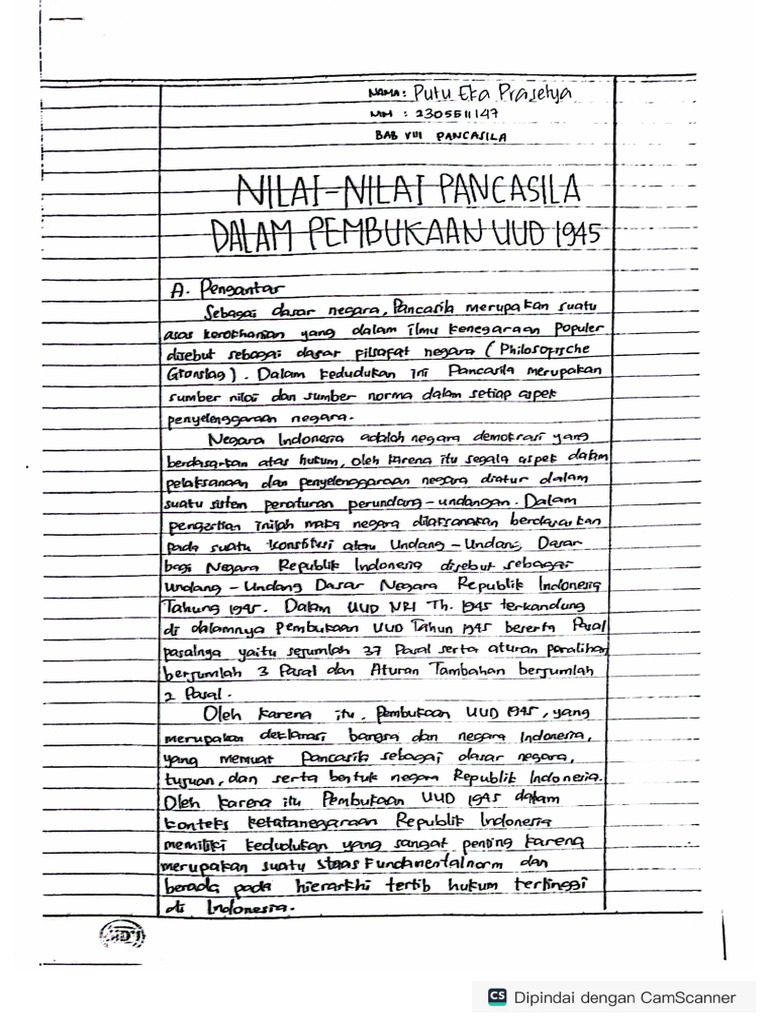 NAMA: Putu Eka Prasetya
NIM : 2305511147
BAB VIII PANCASILA
NILAI-NILAI PANCASILA
DALAM PEMBUKAAN UUD 1945
A. Pengantar
Sebagai dasar negara, Pancasila merupakan suatu
asas kerokhanian yang dalam ilmu kenegaraan populer
disebut sebagai dasar filsafat negara (Philosofische
Gronslag). Dalam kedudukan ini Pancasila merupakan
sumber nilai dan sumber norma dalam setiap aspek
penyelenggaraan negara.
Negara Indonesia adalah negara demokrasi yang
berdasarkan atas hukum, oleh karena itu segala aspek dalam
pelaksanaan dan penyelenggaraan negara diatur dalam
suatu sistem peraturan perundang-undangan. Dalam
pengertian inilah maka negara dilaksanakan berdasarkan
pada suatu konstitusi atau Undang-Undang Dasar
bagi Negara Republik Indonesia disebut sebagai
Undang-Undang Dasar Negara Republik Indonesia
Tahung 1945. Dalam UUD NRI Th. 1945 terkandung
di dalamnya Pembukaan UUD Tahun 1945 beserta Pasal
pasalnya yaitu sejumlah 37 Pasal serta aturan paralihan
berjumlah 3 Pasal dan Aturan Tambahan berjumlah
2 Pasal.
Oleh karena itu, Pembukaan UUD 1945, yang
merupakan deklarasi bangsa dan negara Indonesia,
yang memuat Pancasila sebagai dasar negara,
tujuan, dan serta bentuk negara Republik Indonesia.
Oleh karena itu Pembukaan UUD 1945 dalam
konteks ketatanegaraan Republik Indonesia
memiliki kedudukan yang sangat penting karena
merupakan suatu staas Fundamentalnorm dan
berada pada hierarkhi tertib hukum tertinggi
di Indonesia.
CS Dipindai dengan CamScanner